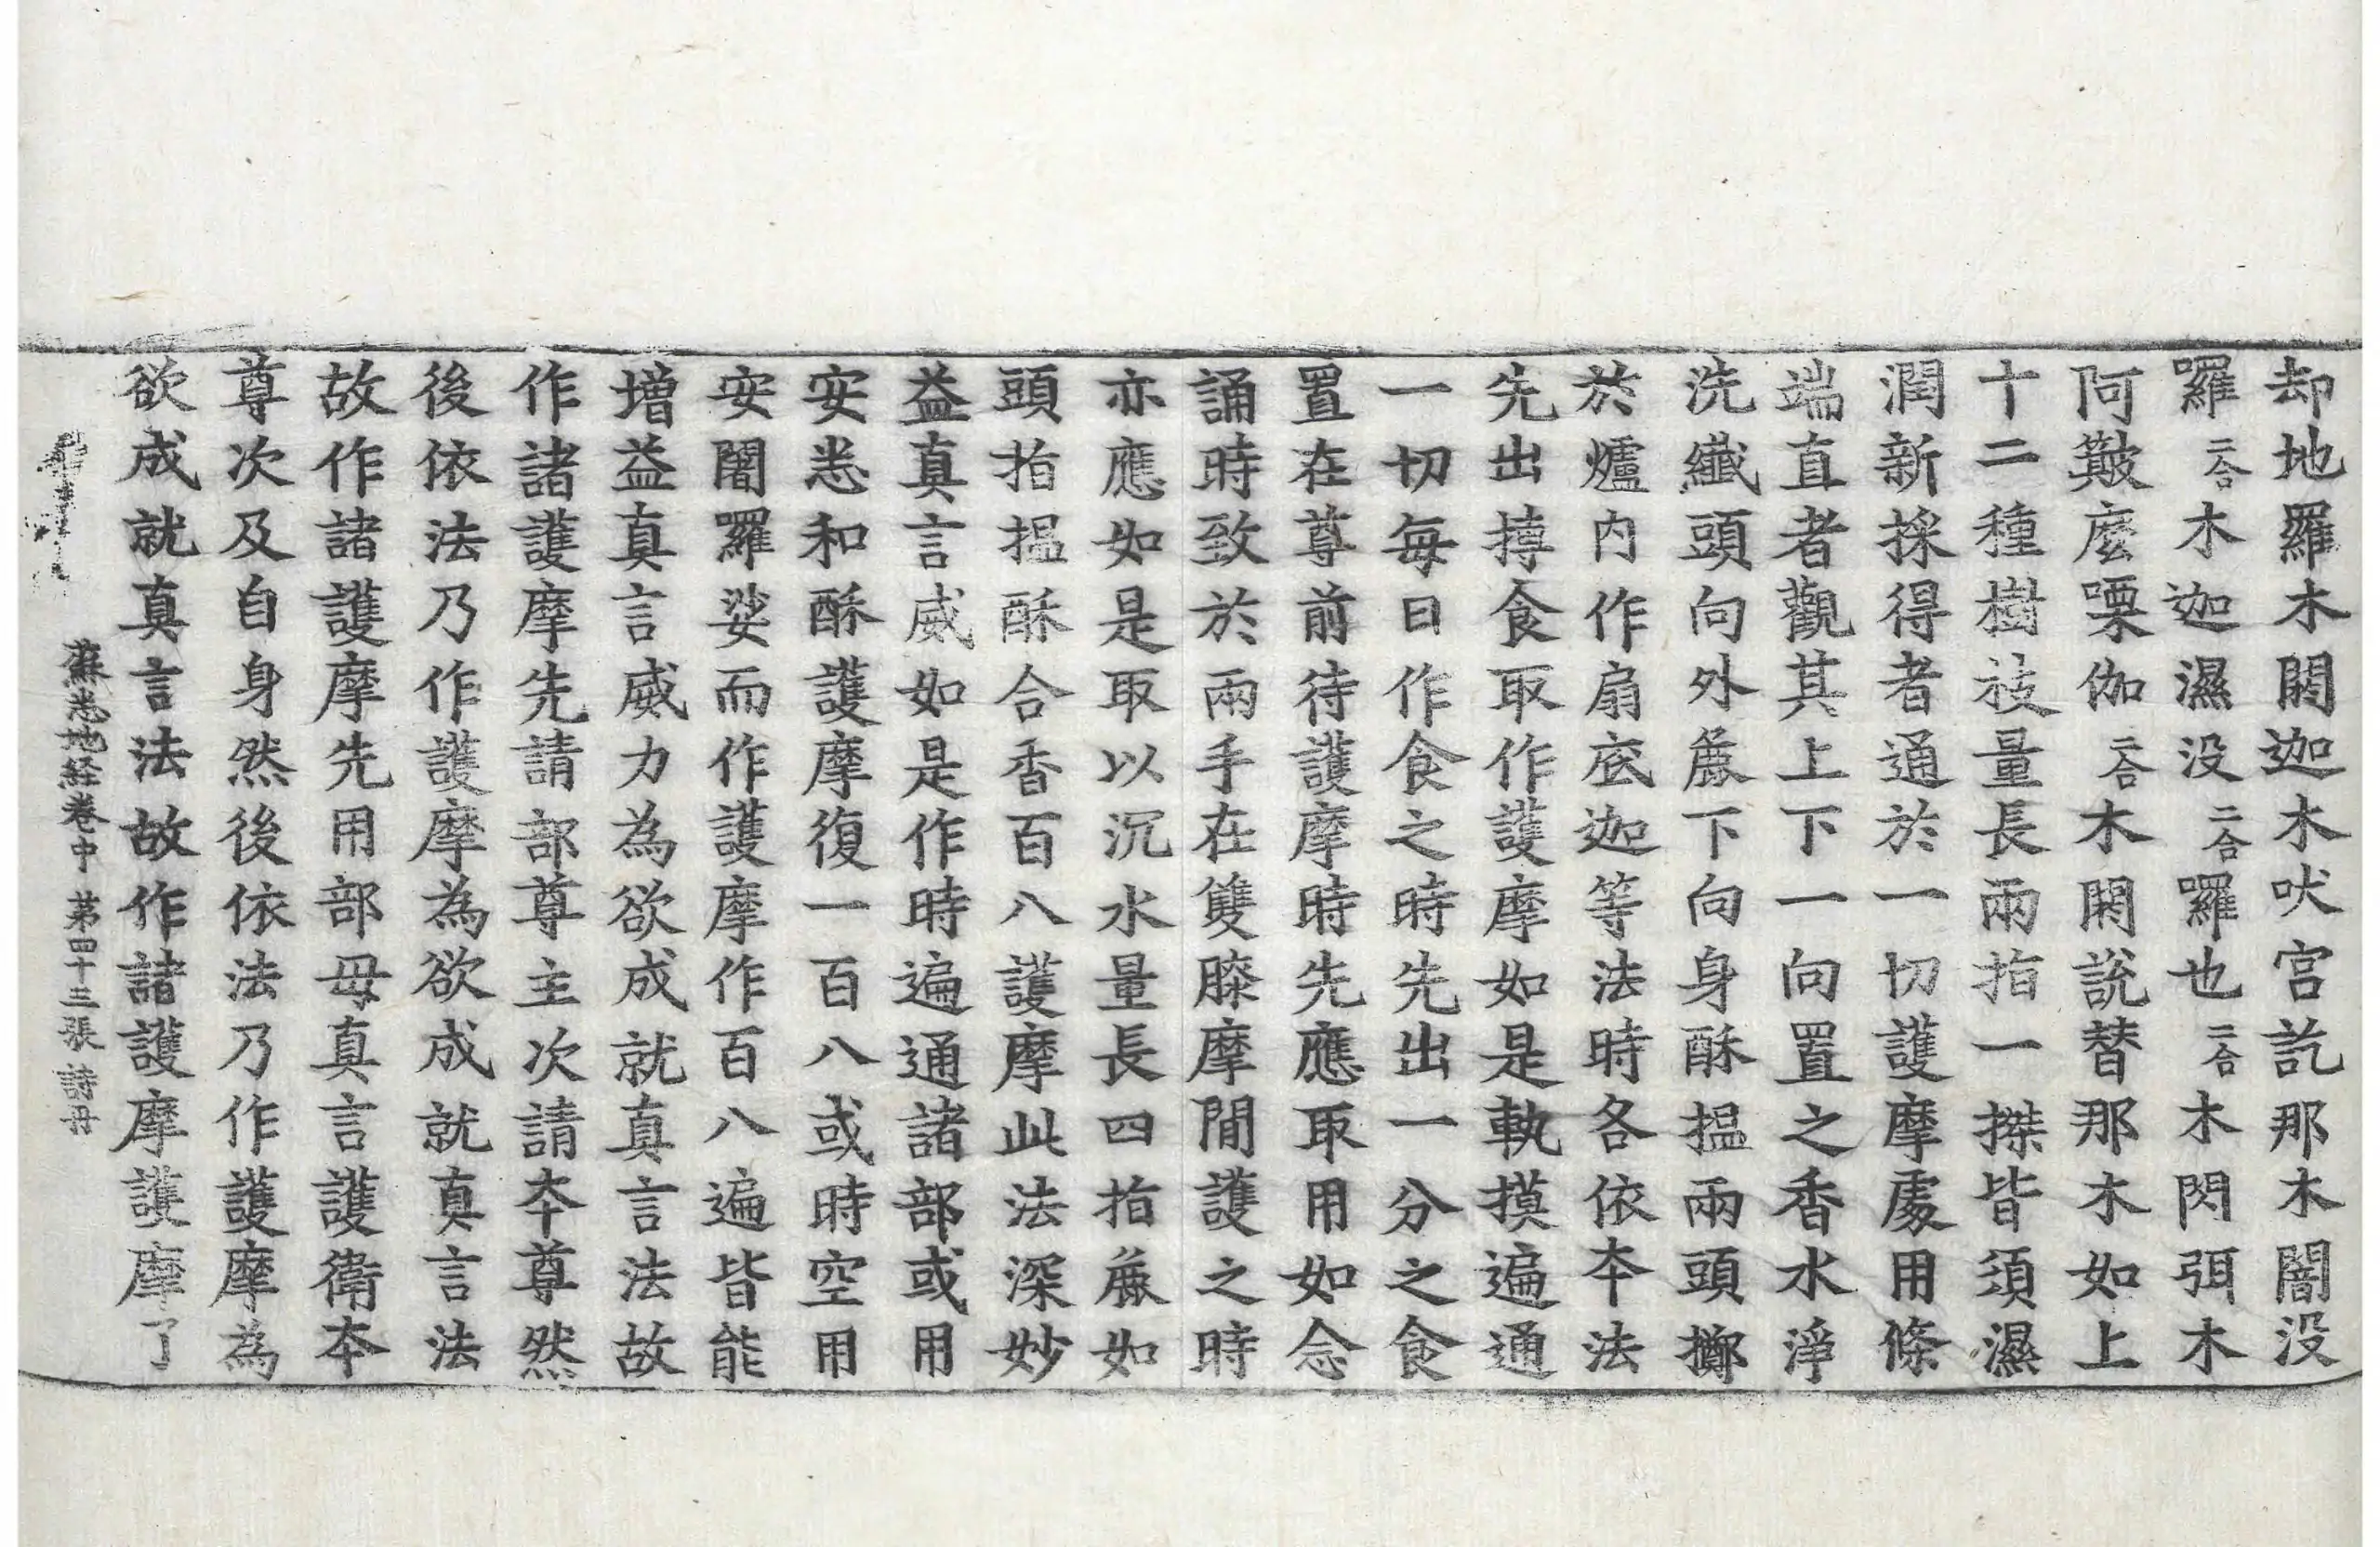 却地羅木閼迦木吠宮訖那木闇没
羅二合木迦濕没二合羅也二合木閃弭木
阿簸麼㗚伽二合木閼説替那木如上
十二種樹枝量長兩指一搩皆須濕
潤新採得者通於一切護摩處用條
端直者觀其上下一向置之香水淨
洗纖頭向外麁下向身酥搵兩頭擲
於爐内作扇底迦等法時各依夲法
先出摶食取作護摩如是執摸遍通
一切每日作食之時先出一分之食
置在尊前待護摩時先應取用如念
誦時致於兩手在雙膝摩間護之時
亦應如是取以沉水量長四指麁如
頭指搵酥合香百八護摩此法深妙
益真言威如是作時遍通諸部或用
安悉和酥護摩復一百八或時空用
安闍羅娑而作護摩作百八遍皆能
增益真言威力為欲成就真言法故
作諸護摩先請部尊主次請夲尊然
後依法乃作護摩為欲成就真言法
故作諸護摩先用部母真言護衛夲
尊次及自身然後依法乃作護摩為
欲成就真言法故作諸護摩護摩了
蘇悉地経巻中 苐四十三張 詩